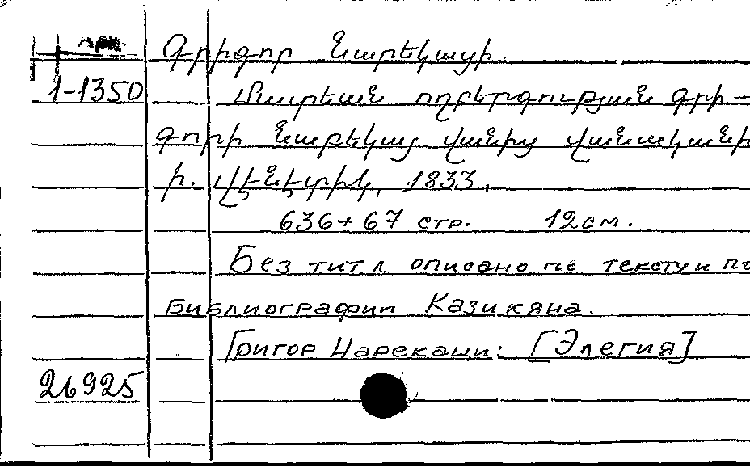 Арм
Գրիգոր Նարեկացի.
1-1350 Մատեան ողբերգության Գրի-
գորի Նարեկայ վանից վանականի
ի. Վէնէտիկ, 1833.
636+67 стр. 12 см.
Без тит л описано по тексту и по
библиографии Казикяна.
Григор Нарекаци: [Элегия]
26925